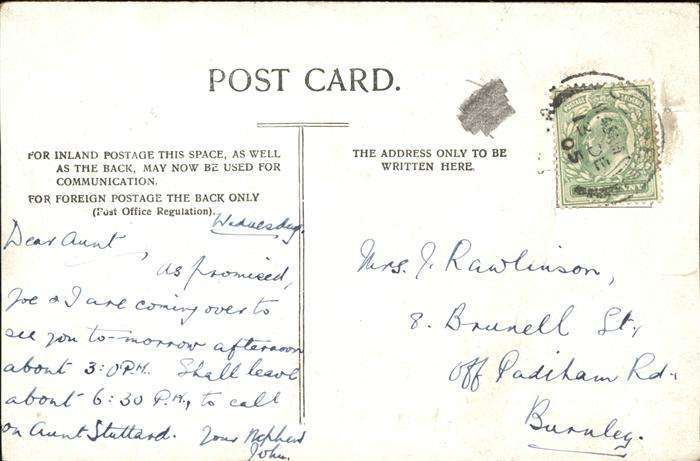 POST CARD.
FOR INLAND POSTAGE THIS SPACE, AS WELL
AS THE BACK, MAY NOW BE USED FOR
COMMUNICATION.
FOR FOREIGN POSTAGE THE BACK ONLY
(Post Office Regulation).
Wednesday.
Dear Aunt,
as promised,
Joe & I are coming over to
see you to-morrow afternoon
about 3:0 P.M. Shall leave
about 6:30 P.M., to call
on Aunt Stuttard. Your Nephew
John.
THE ADDRESS ONLY TO BE
WRITTEN HERE.
Mrs. J. Rawlinson,
8. Brunell St,
Off Padiham Rd.
Burnley.
05